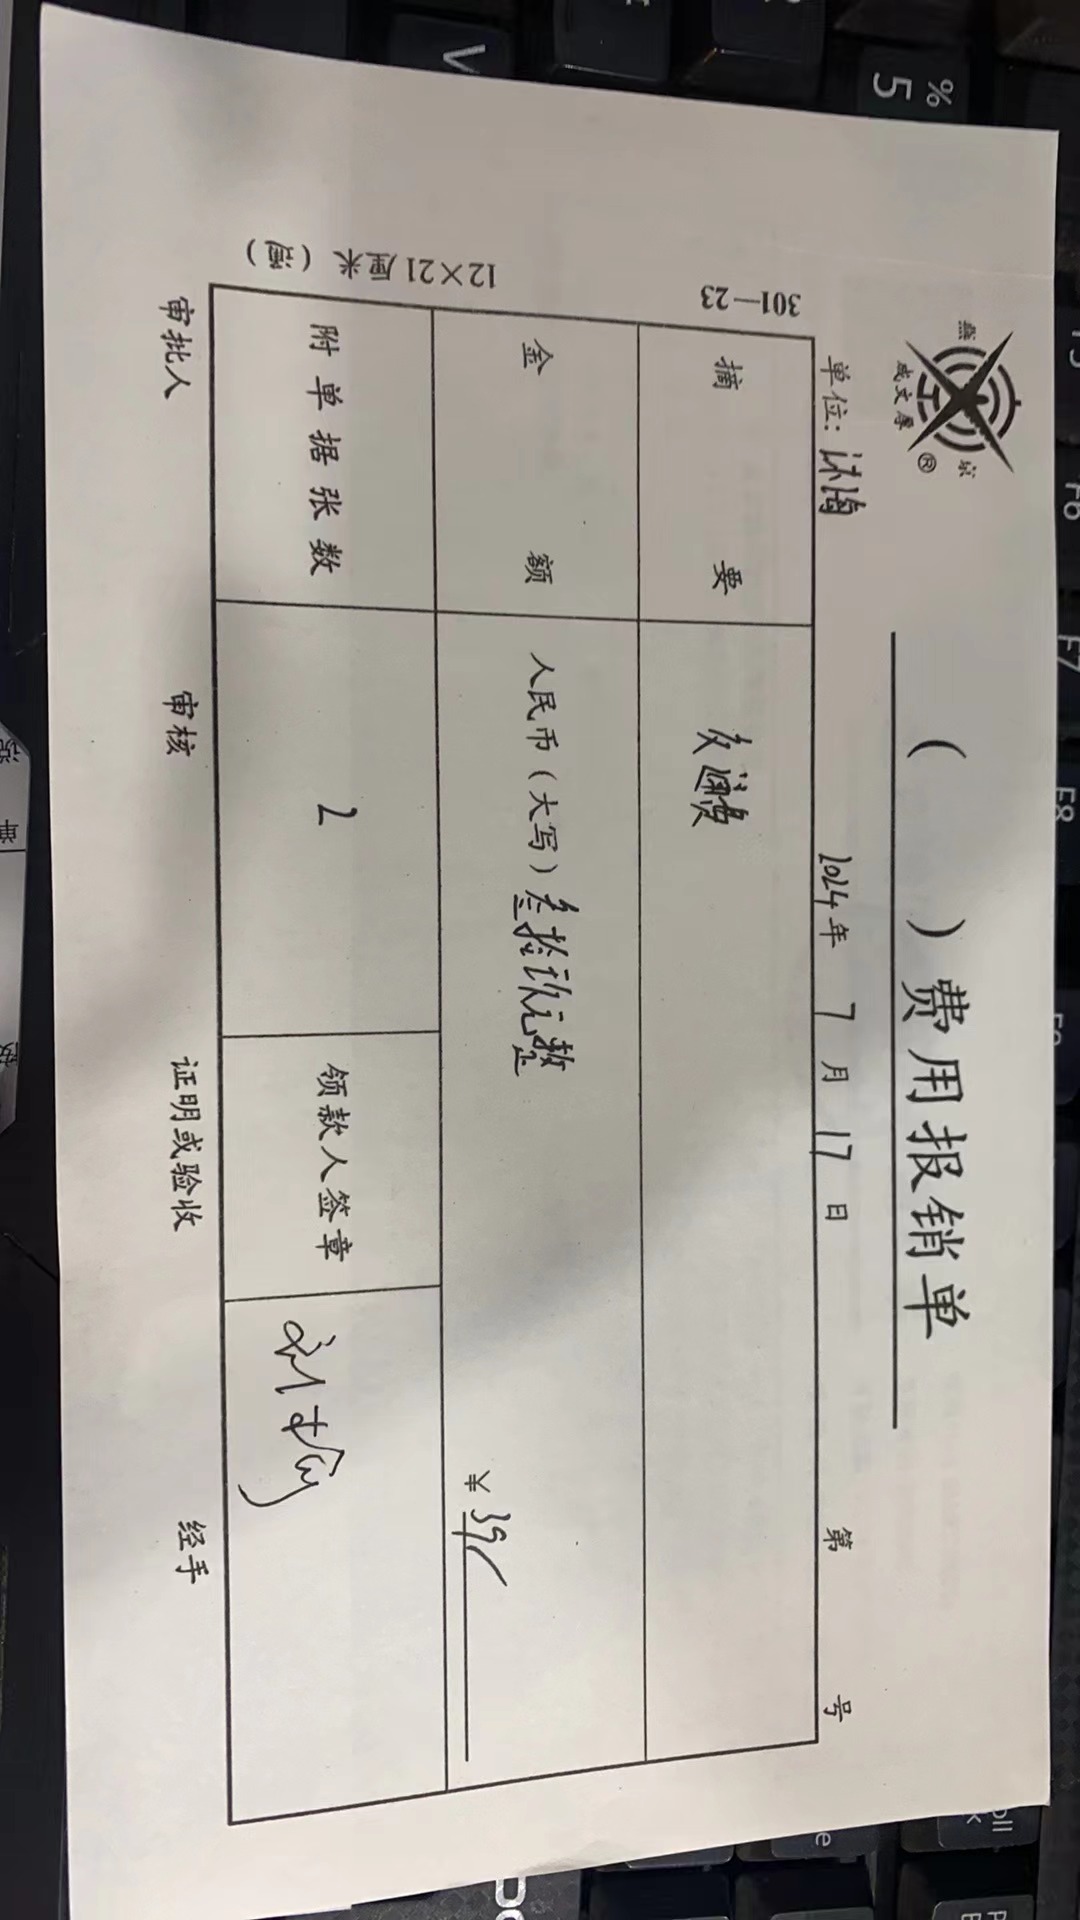 燕 京
成文厚 ®
( ) 费用报销单
单位: 2024年 7 月 17 日 第 号
摘 要 交通费
金 额 人民币(大写) 叁拾玖元整
¥ 39/
附单据张数 2 领款人签章
审批人 审核 证明或验收 经手
301—23
12×21厘米
% 5
V
F6
F7
F8